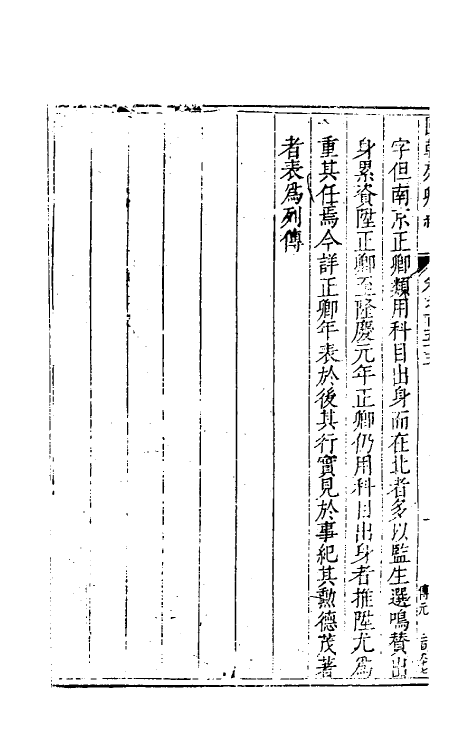 字但南京正卿類用科目出身而在北者多以監生選鳴贊出
身累資陞正卿至隆慶元年正卿仍用科目出身者推陞尤為
重其任焉今詳正卿年表於後其行實見於事紀其勲德茂著
者表為列傳